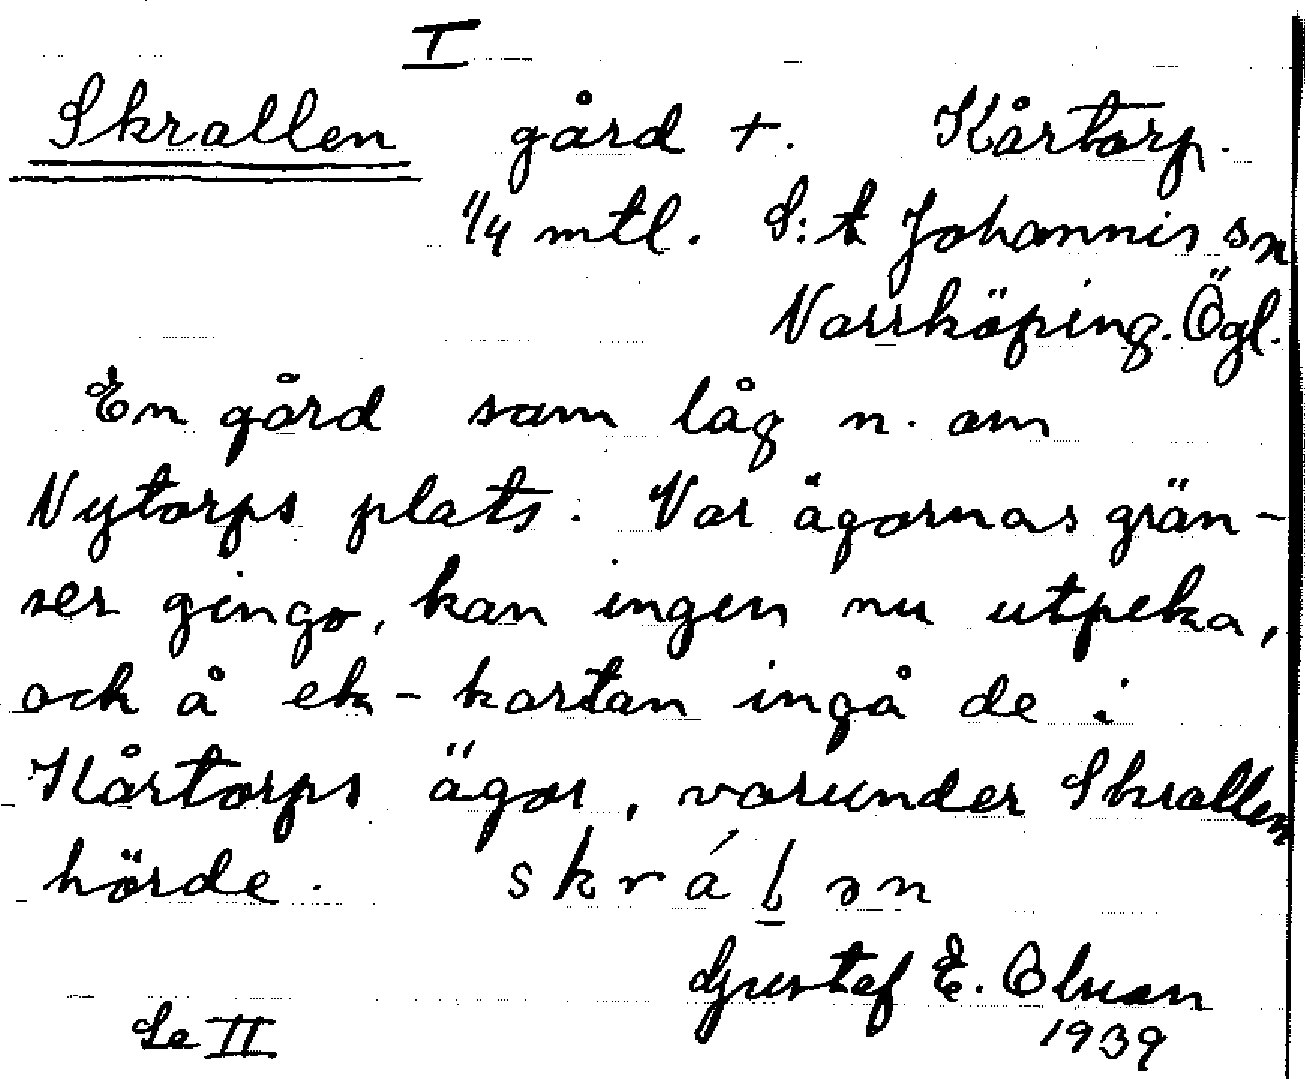 I
Skrallen gård +. Kårtorp.
1/4 mtl. S:t Johannis sn
Norrköping. Ögl.
En gård som låg n. om
Nytorps plats. Var ägornas grän-
ser gingo, kan ingen nu utpeka,
och å ek-kartan ingå de i
Kårtorps ägor, varunder Skrallen
hörde. skrálən
Gustaf E. Olsson
1939
Se II